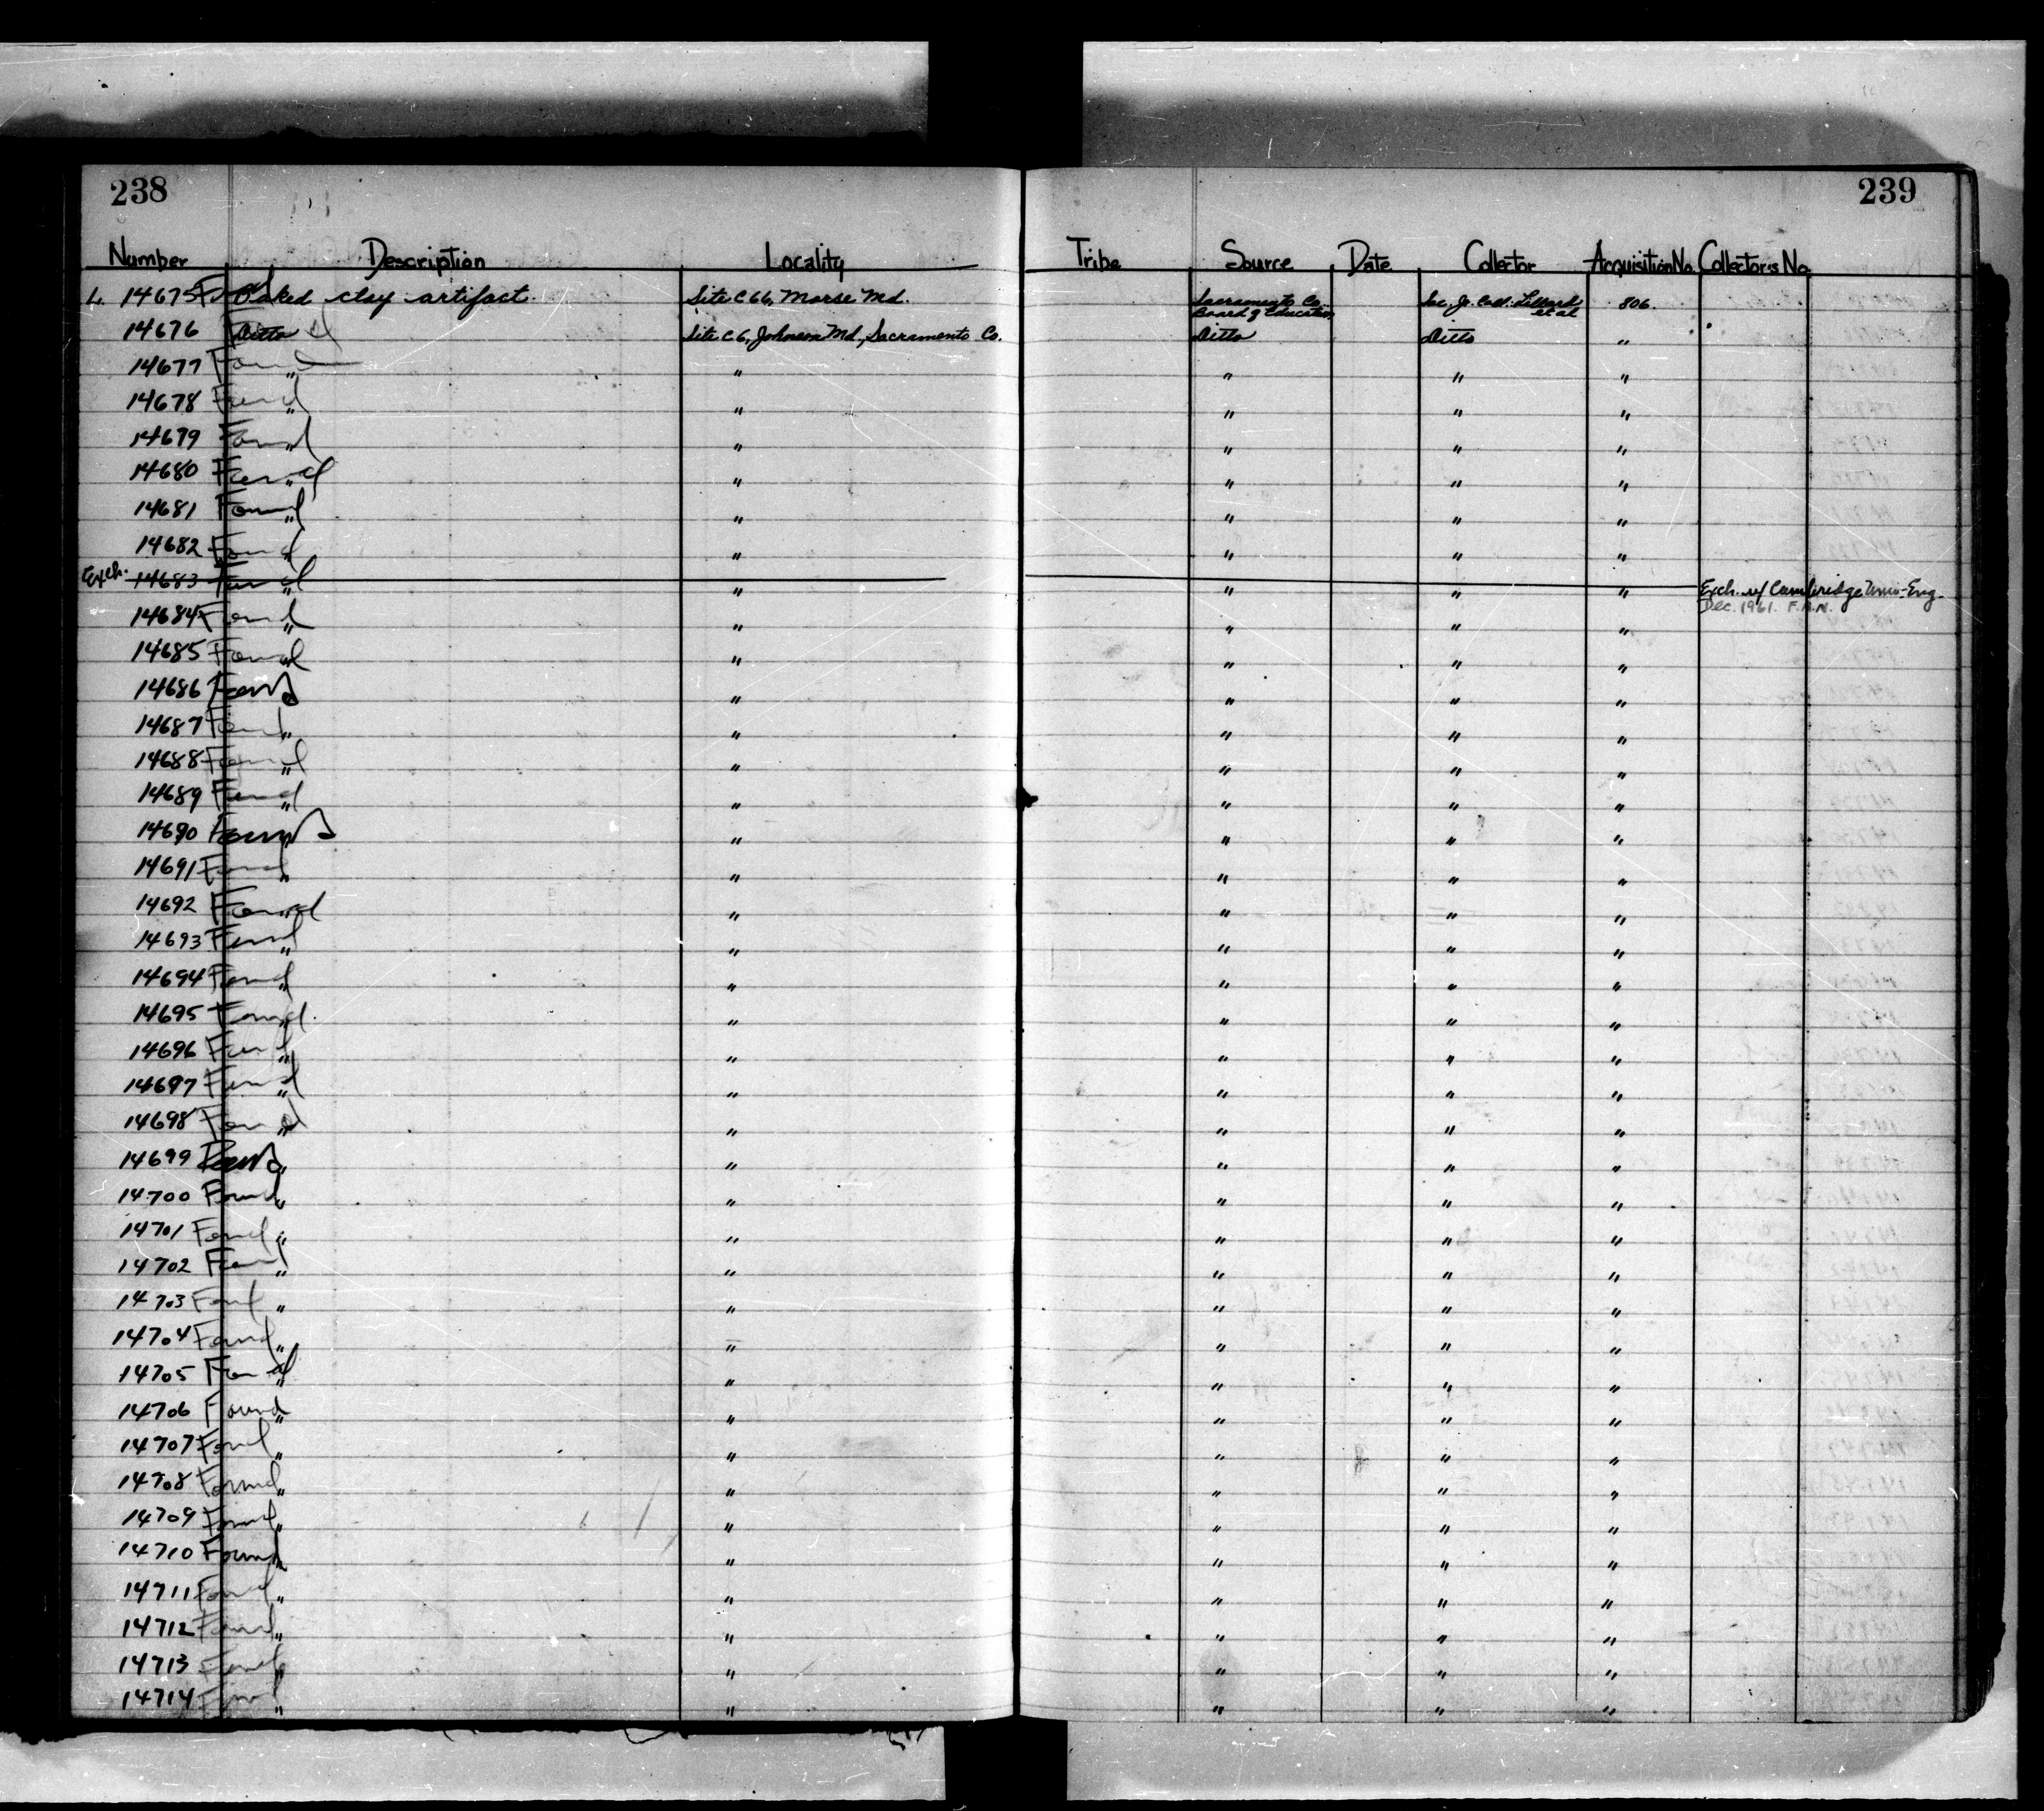 238 239
Number Description Locality Tribe Source Date Collector Acquisition No. Collector's No.
L. 14675 Found Baked clay artifact. Site C 66, Morse Md. Sacramento Co. Board of Education Sac. Jr. Coll. Lillard et al 806.
14676 Found Ditto Site C 6, Johnson Md., Sacramento Co. Ditto Ditto "
14677 Found " " " " "
14678 Found " " " " "
14679 Found " " " " "
14680 Found " " " " "
14681 Found " " " " "
14682 Found " " " " "
Exch. 14683 Found " " " " " Exch. w/ Cambridge Univ-Eng. Dec. 1961. F.A.N.
14684 Found " " " " "
14685 Found " " " " "
14686 Found " " " " "
14687 Found " " " " "
14688 Found " " " " "
14689 Found " " " " "
14690 Found " " " " "
14691 Found " " " " "
14692 Found " " " " "
14693 Found " " " " "
14694 Found " " " " "
14695 Found " " " " "
14696 Found " " " " "
14697 Found " " " " "
14698 Found " " " " "
14699 Found " " " " "
14700 Found " " " " "
14701 Found " " " " "
14702 Found " " " " "
14703 Found " " " " "
14704 Found " " " " "
14705 Found " " " " "
14706 Found " " " " "
14707 Found " " " " "
14708 Found " " " " "
14709 Found " " " " "
14710 Found " " " " "
14711 Found " " " " "
14712 Found " " " " "
14713 Found " " " " "
14714 Found " " " " "